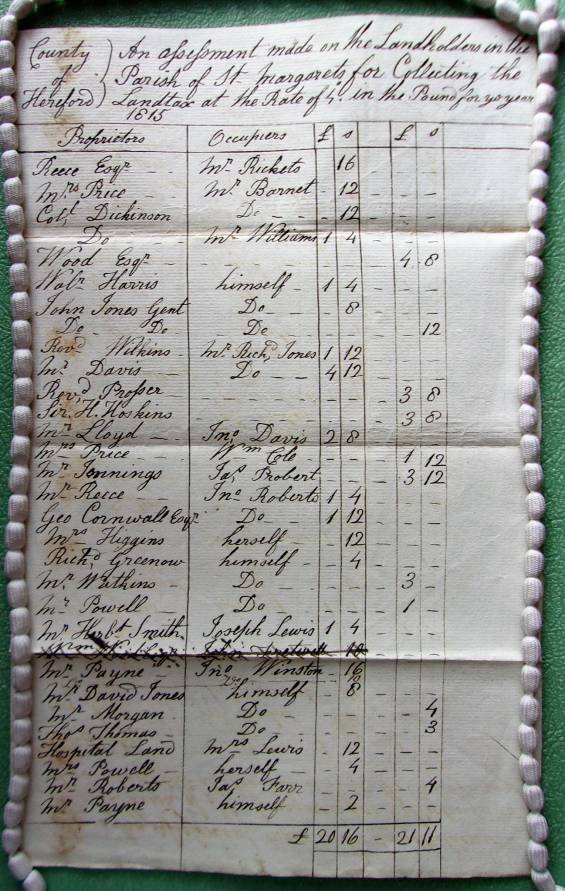 County ) An assessment made on the Landholders in the
of ) Parish of St. Margarets for Collecting the
Hereford) Landtax at the Rate of 4s. in the Pound for ye year
1815
Proprietors Occupiers £ s £ s
Reece Esqr Mr. Rickets 16
Mrs Price Mr. Barnet 12
Col. Dickinson Do 12
Do Mr Williams 1 4
Wood Esqr 4 8
Walr Harris himself 1 4
John Jones Gent Do 8
Do Do Do 12
Revd Wilkins Mr. Richd Jones 1 12
Mr. Davis Do 4 12
Revd Prosser 3 8
Sir. H. Hoskins 3 8
Mr Lloyd Jno Davis 2 8
Mrs Price Wm Cole 1 12
Mr Jennings Jas Probert 3 12
Mr Reece Jno Roberts 1 4
Geo Cornwall Esqr Do 1 12
Mrs Higgins herself 12
Richd Greenow himself 4
Mr. Watkins Do 3
Mr Powell Do 1
Mr. Herbt Smith Joseph Lewis 1 4
Mr Payne Jno Winston 16
Mr. David Jones himself 8
Mr Morgan Do 4
Thos Thomas Do 3
Hospital Land Mrs Lewis 12
Mrs Powell herself 4
Mr Roberts Jas Farr 4
Mr Payne himself 2
£ 20 16 - 21 11